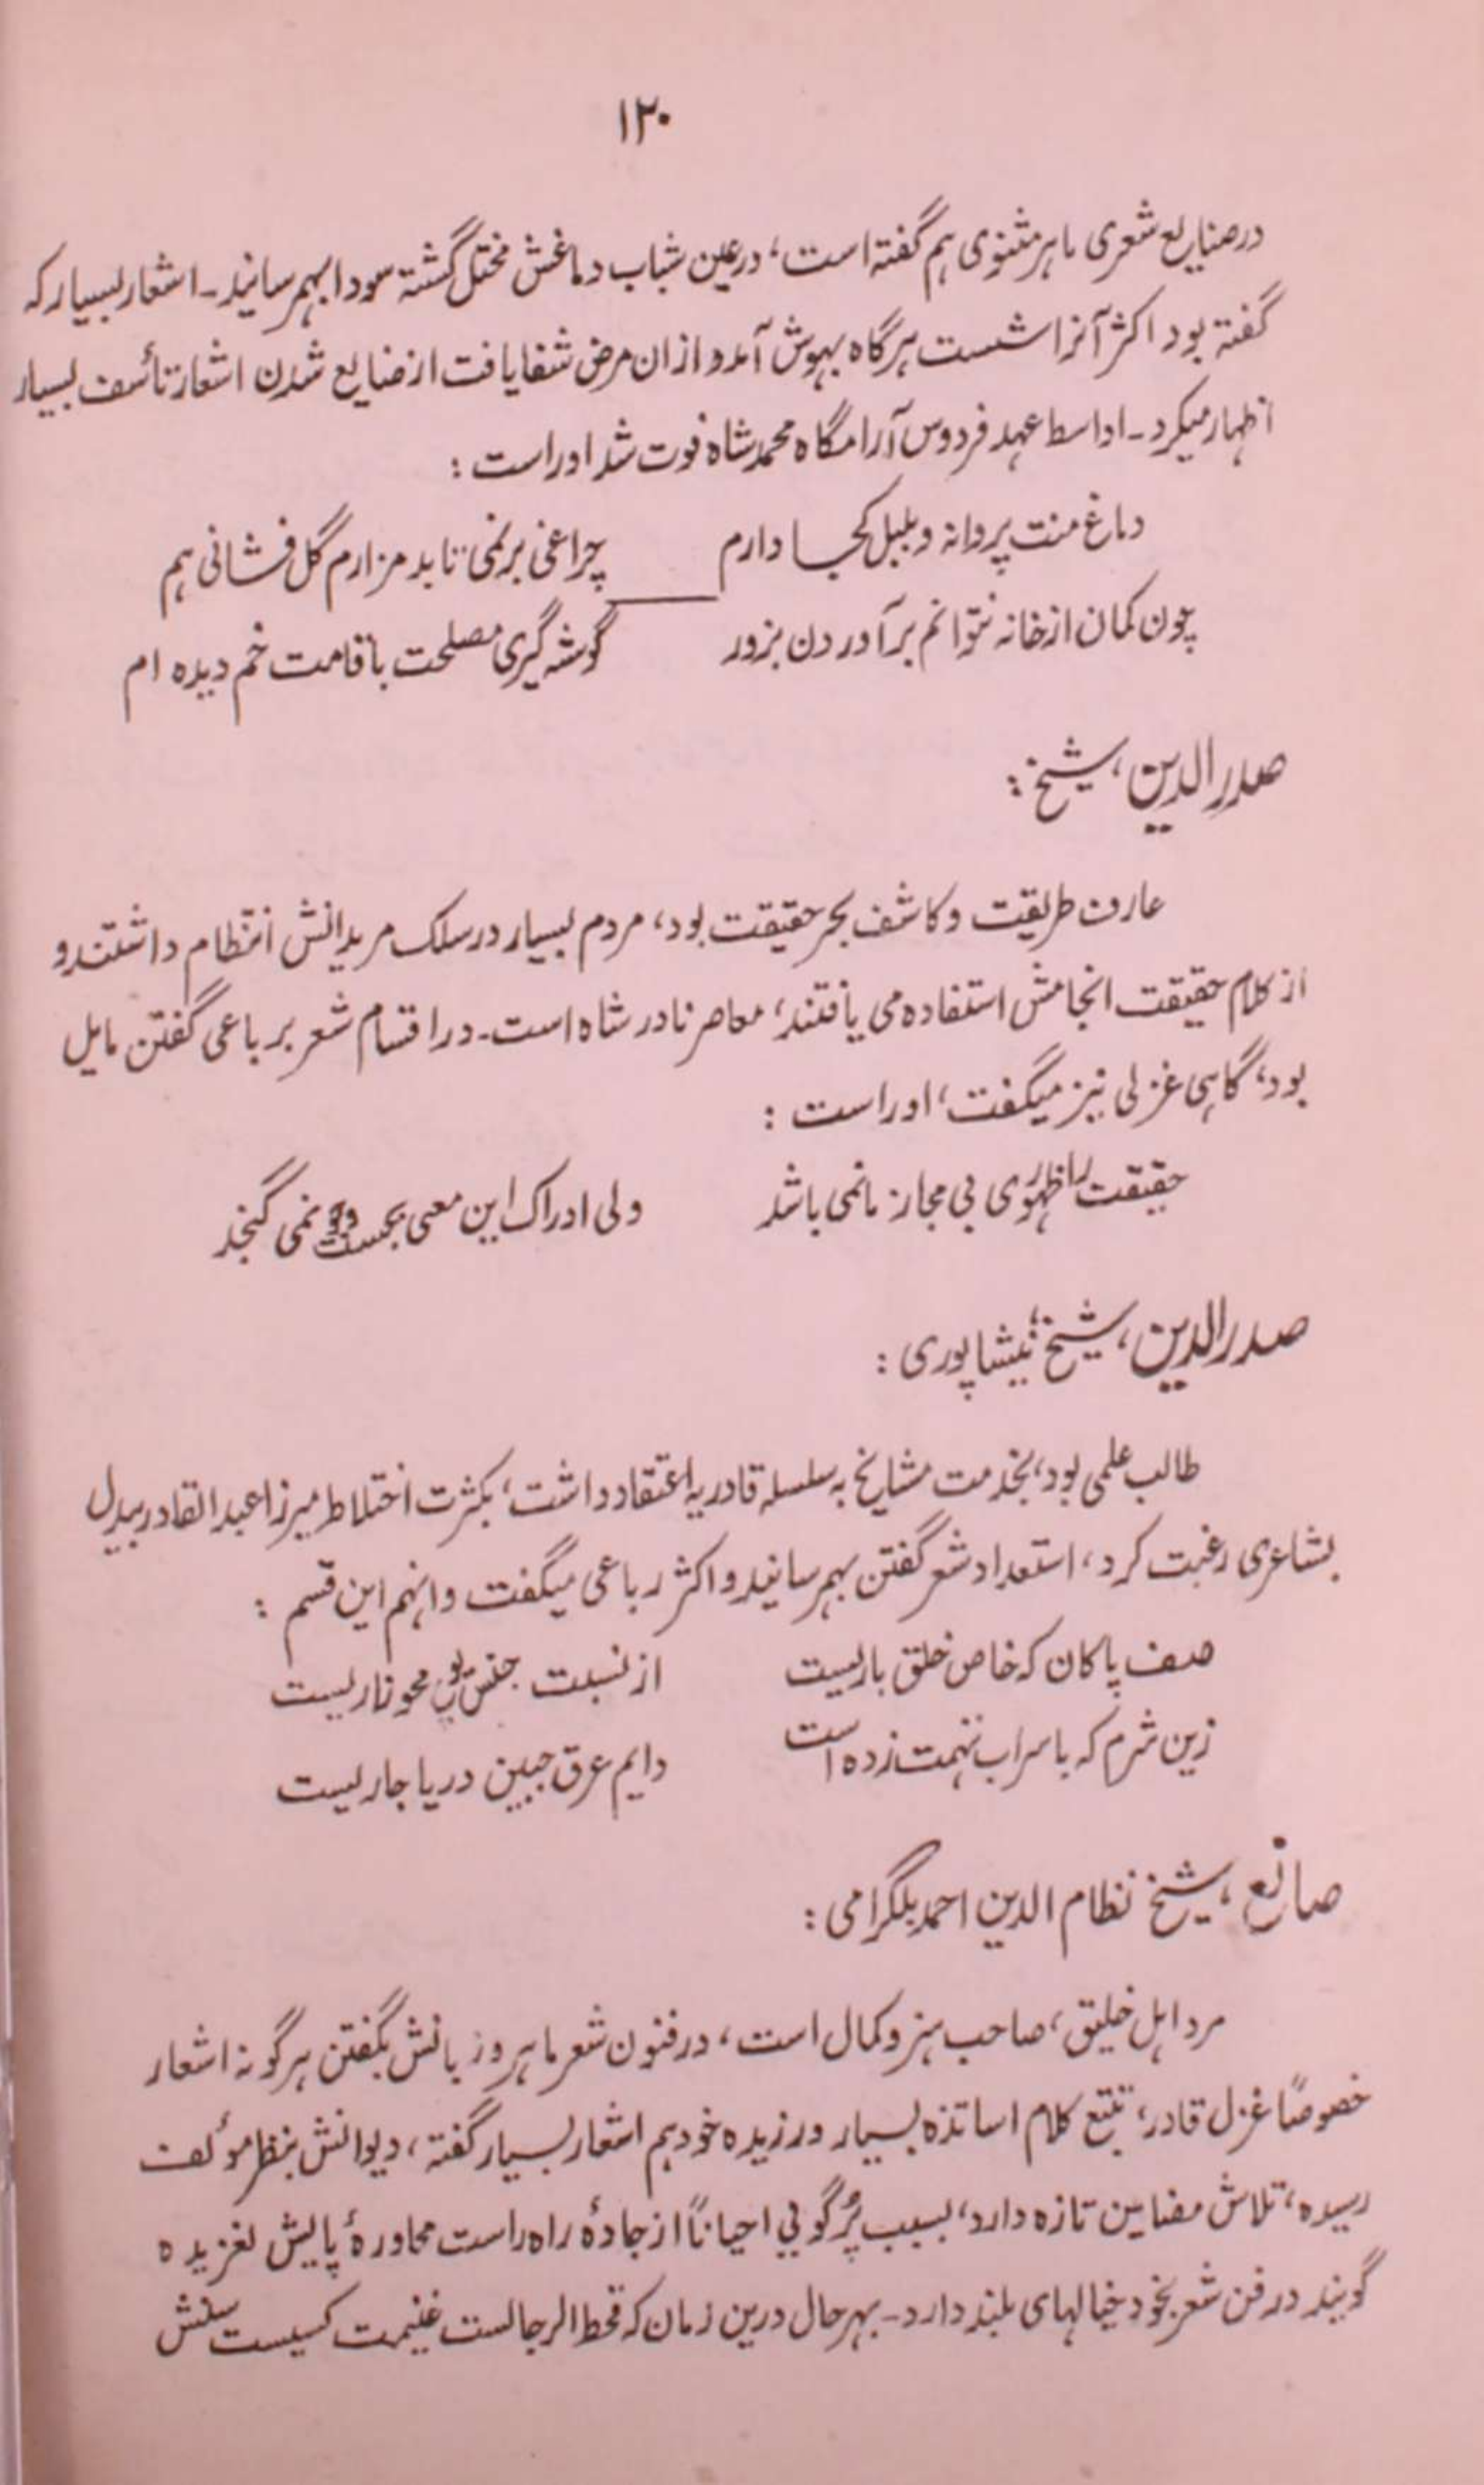 ۱۲۰
در صنایع شعری ماہر مثنوی ہم گفتہ است، در عین شباب دماغش مختل گشتہ سودا بہمرسانید۔ اشعار بسیار کہ
گفتہ بود اکثر آنرا شست ہرگاہ بہوش آمد و ازان مرض شفا یافت از ضایع شدن اشعار تأسف بسیار
اظہار میکرد۔ اواسط عہد فردوس آرامگاہ محمد شاہ فوت شد اوراست :
دماغ منت پروانہ و بلبل کجا دارم
چراغی بر نمی تابد مزارم گل فشانی ہم
چون کمان از خانہ نتوانم برآوردن بزور
گوشہ گیری مصلحت با قامت خم دیدہ ام
صدرالدین، شیخ :
عارف طریقت و کاشف بحر حقیقت بود، مردم بسیار در سلک مریدانش انتظام داشتند و
از کلام حقیقت انجامش استفادہ می یافتند، معاصر نادر شاہ است۔ در اقسام شعر برباعی گفتن مایل
بود، گاہی غزلی نیز میگفت، اوراست :
حقیقت را ظہوری بی مجاز ما نمی باشد
ولی ادراک این معنی بجست وجو نمی گنجد
صدرالدین، شیخ، نیشاپوری :
طالب علمی بود، بخدمت مشایخ بہ سلسلہ قادریہ اعتقاد داشت، بکثرت اختلاط میرزا عبدالقادر بیدل
بشاعری رغبت کرد، استعداد شعر گفتن بہمرسانید و اکثر رباعی میگفت و انہم این قسم :
صف پاکان کہ خاص خلق باریست
از نسبت جنس محو زاریست
زین شرم کہ با سراب تہمت زدہ است
دایم عرق جبین دریا جاریست
صانع، شیخ نظام الدین احمد بلگرامی :
مرد اہل خلیق، صاحب ہنر و کمال است، در فنون شعر ماہر و زبانش بگفتن ہرگونہ اشعار
خصوصاً غزل قادر، تتبع کلام اساتذہ بسیار ورزیدہ خود ہم اشعار بسیار گفتہ، دیوانش بنظر مؤلف
رسیدہ، تلاش مضامین تازہ دارد، بسبب پُرگویی احیاناً از جادۂ راہ راست محاورۂ پایش لغزیدہ
گویند در فن شعر بخود خیالہای بلند دارد۔ بہرحال درین زمان کہ قحط الرجالست غنیمت کسیست سنش